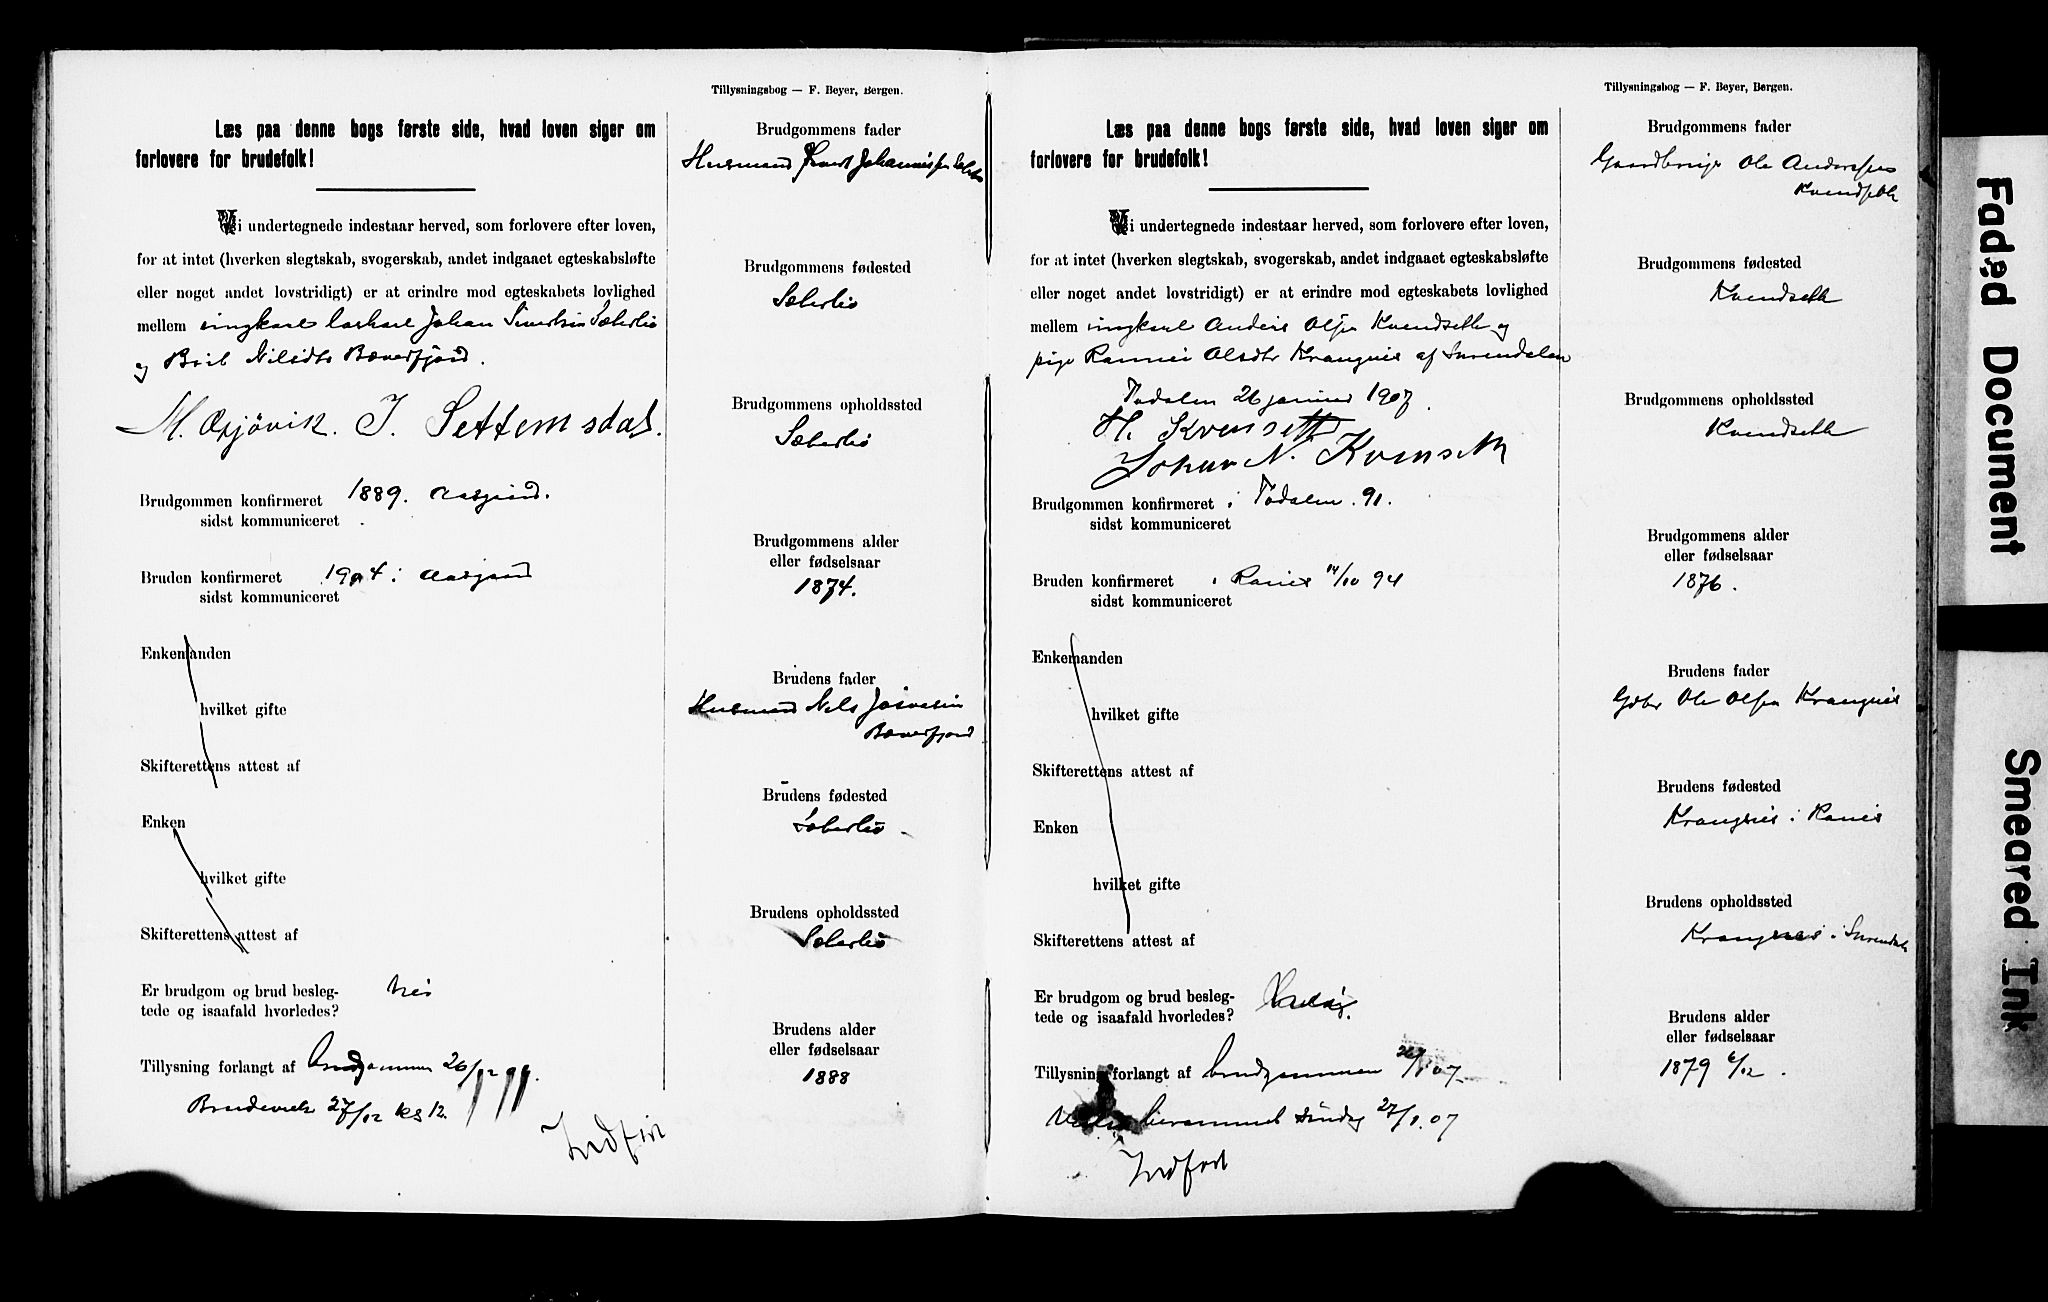 Tillysningsbog — F. Beyer, Bergen.
Læs paa denne bogs første side, hvad loven siger om
forlovere for brudefolk!
Vi undertegnede indestaar herved, som forlovere efter loven,
for at intet (hverken slegtskab, svogerskab, andet indgaaet egteskabsløfte
eller noget andet lovstridigt) er at erindre mod egteskabets lovlighed
mellem ungkarl Johan Sivertsen Sæterlis
og Brit Nilsdtr Bæverfjord.
M. Ørsjøvik. I. Settemsdal.
Brudgommen konfirmeret 1889. Aasgaard.
sidst kommuniceret
Bruden konfirmeret 1904 i Aasgaard
sidst kommuniceret
Enkemanden
hvilket gifte
Skifterettens attest af
Enken
hvilket gifte
Skifterettens attest af
Er brudgom og brud besleg- Nei
tede og isaafald hvorledes?
Tillysning forlangt af brudgommen 26/12
27/12 kl 12.
Indført
Brudgommens fader
Husmand Sivert Johannessen
Brudgommens fødested
Sæterlis
Brudgommens opholdssted
Sæterlis
Brudgommens alder
eller fødselsaar
1874.
Brudens fader
Husmand Nels
Bæverfjord
Brudens fødested
Sæterlis
Brudens opholdssted
Sæterlis
Brudens alder
eller fødselsaar
1888
Tillysningsbog — F. Beyer, Bergen.
Læs paa denne bogs første side, hvad loven siger om
forlovere for brudefolk!
Vi undertegnede indestaar herved, som forlovere efter loven,
for at intet (hverken slegtskab, svogerskab, andet indgaaet egteskabsløfte
eller noget andet lovstridigt) er at erindre mod egteskabets lovlighed
mellem ungkarl Anders Olsen Kvendseth og
pige Rannei Olsdtr Krangnes af Surendalen
Todalen 26 januar 1907.
H. Kvenseth
Johan N. Kvenseth
Brudgommen konfirmeret i Todalen. 91.
sidst kommuniceret
Bruden konfirmeret i Ranes 14/10 94
sidst kommuniceret
Enkemanden
hvilket gifte
Skifterettens attest af
Enken
hvilket gifte
Skifterettens attest af
Er brudgom og brud besleg-
tede og isaafald hvorledes?
Tillysning forlangt af brudgommen 26/1 07
berammet søndag 27/1.07
Indført
Brudgommens fader
Gaardbruger Ole Anderssen
Kvendseth
Brudgommens fødested
Kvendseth
Brudgommens opholdssted
Kvendseth
Brudgommens alder
eller fødselsaar
1876.
Brudens fader
Gdbr Ole Olsen Krangnes
Brudens fødested
Krangnes i Ranes
Brudens opholdssted
Krangnes i Surendal
Brudens alder
eller fødselsaar
1879 6/12.
Faded Document
Smeared Ink